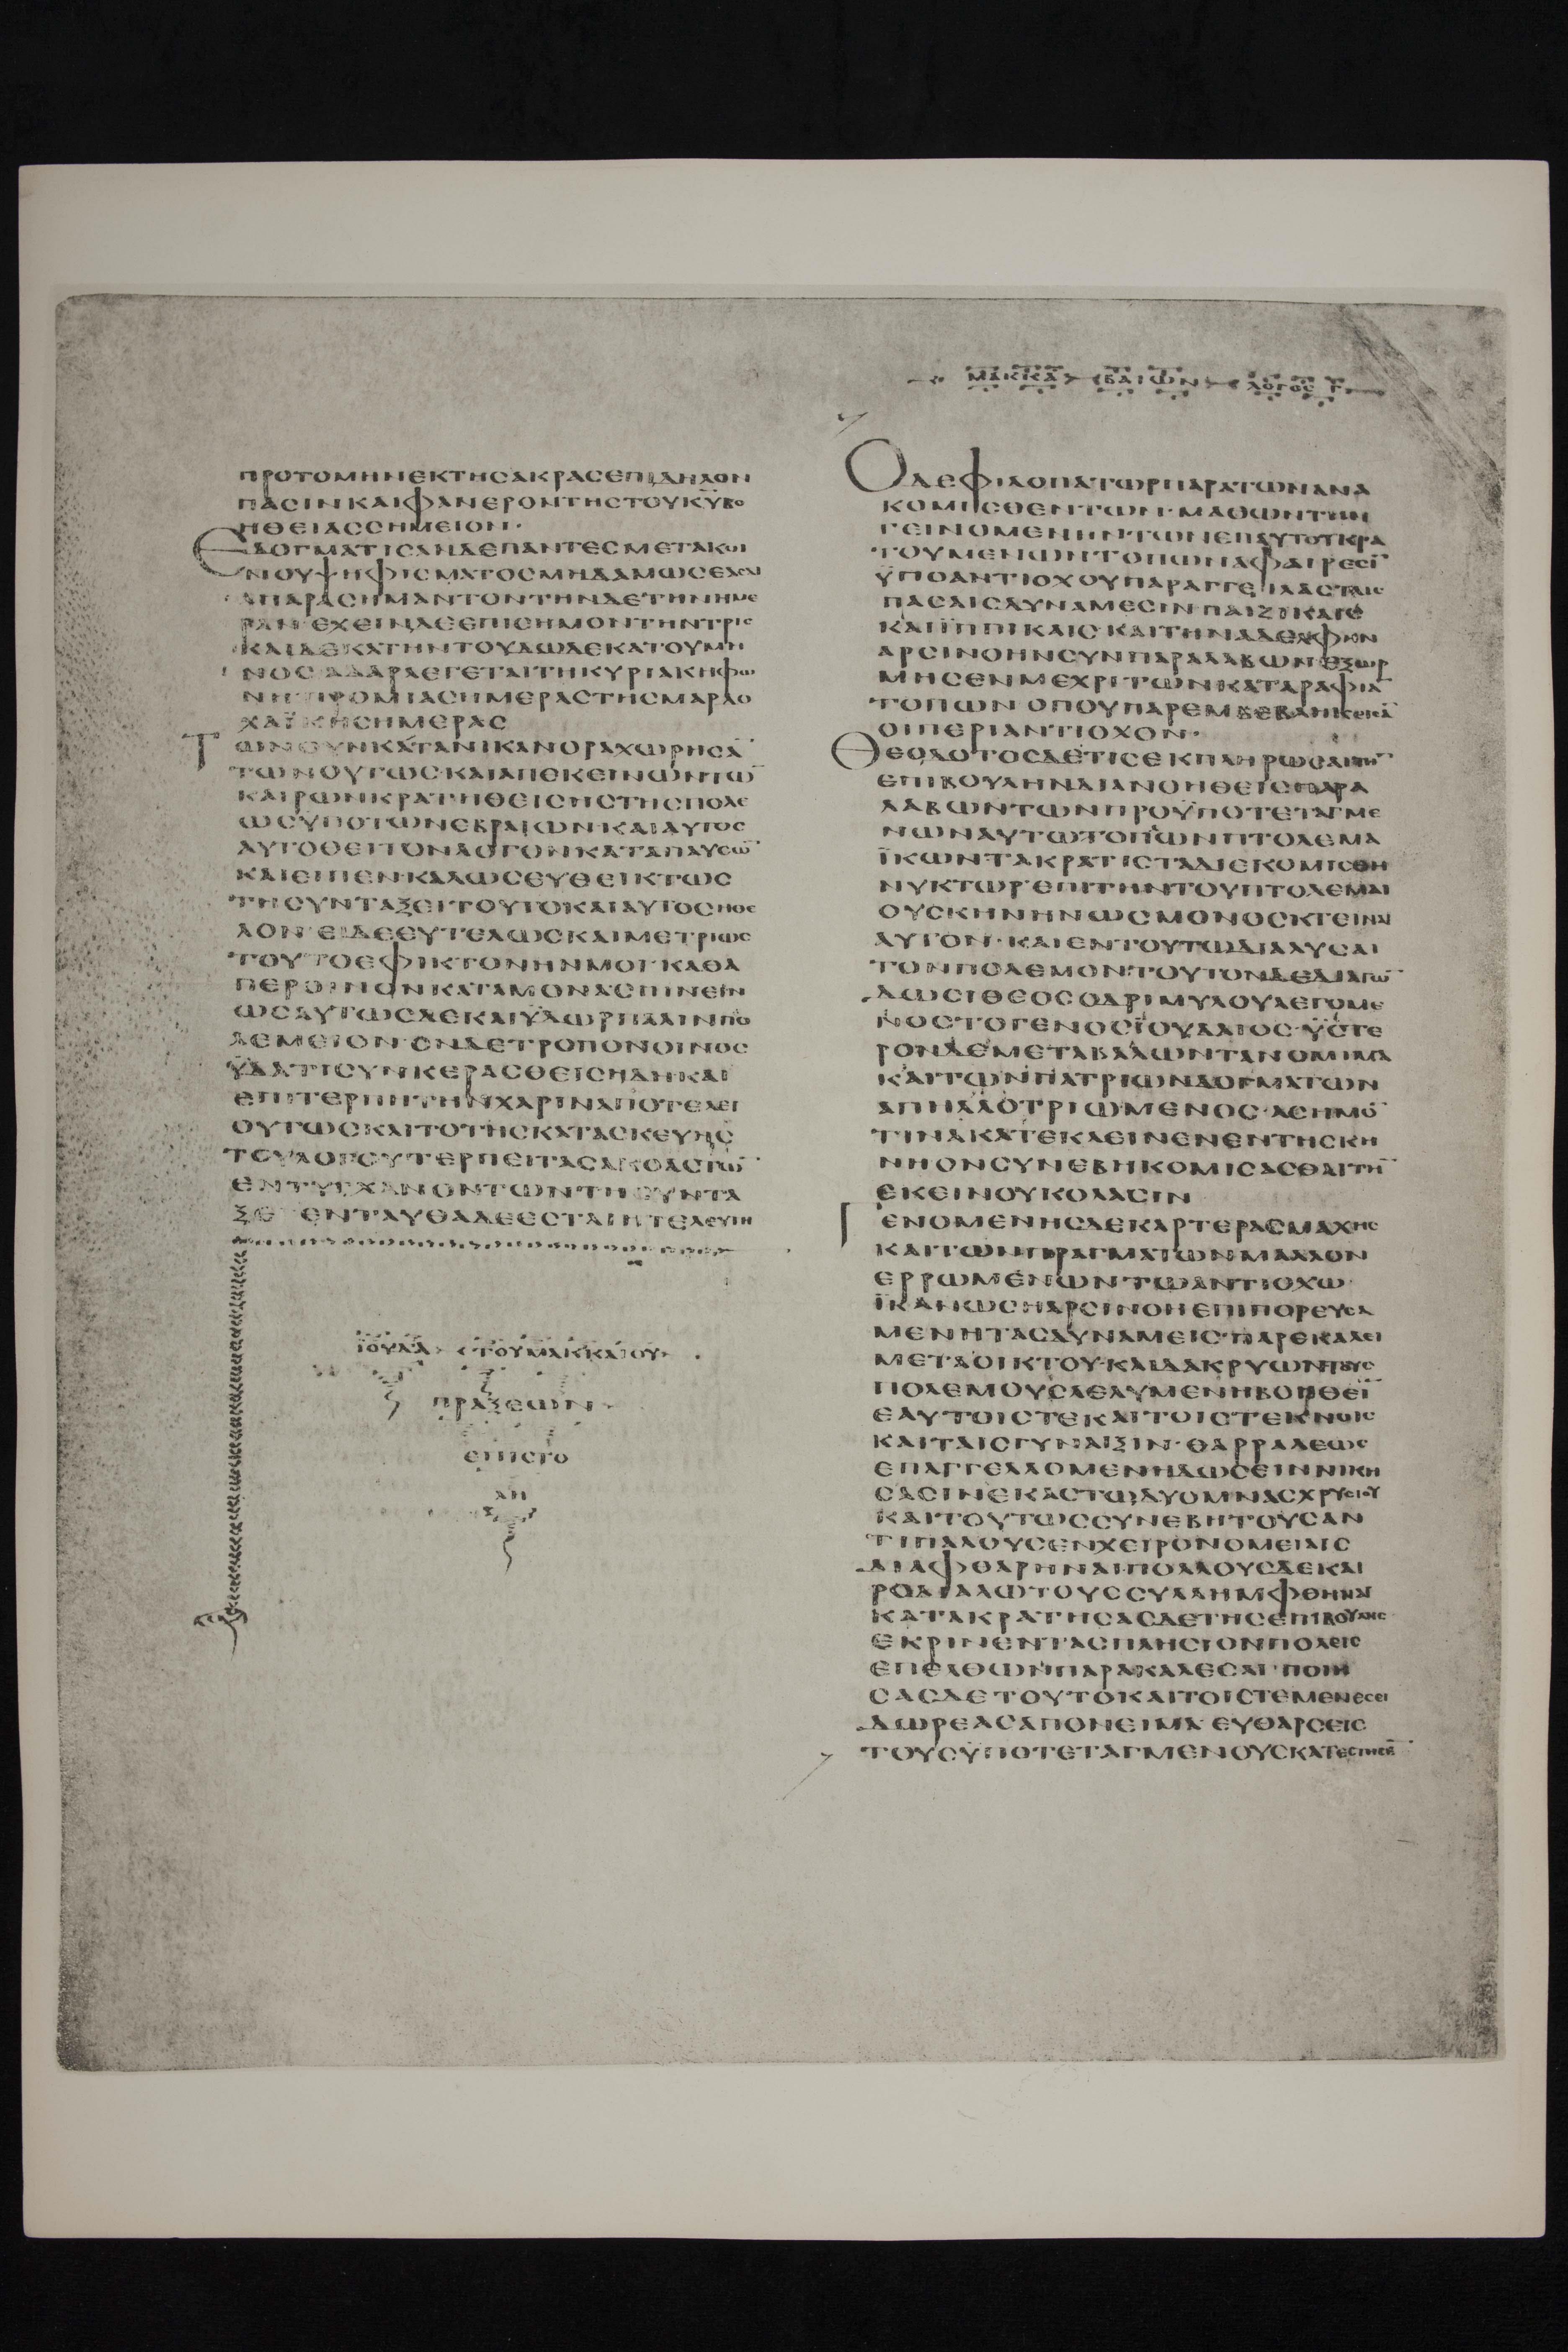 ΠΡΟΤΟΜΗΝΕΚΤΗΣΑΚΡΑΣΕΠΙΔΗΛΟΝ
ΠΑΣΙΝΚΑΙΦΑΝΕΡΟΝΤΗΣΤΟΥΚΫΒΟ
ΗΘΕΙΑΣΣΗΜΕΙΟΝ·
ΕΔΟΓΜΑΤΙΣΑΝΔΕΠΑΝΤΕΣΜΕΤΑΚΟΙ
ΝΟΥΨΗΦΙΣΜΑΤΟΣΜΗΔΑΜΩΣΕΑΣΑΙ
ΑΠΑΡΑΣΗΜΑΝΤΟΝΤΗΝΔΕΤΗΝΗΜΕ
ΡΑΝ·ΕΧΕΙΝΔΕΕΠΙΣΗΜΟΝΤΗΝΤΡΙΣ
ΚΑΙΔΕΚΑΤΗΝΤΟΥΔΩΔΕΚΑΤΟΥΜΗ
ΝΟΣ·ΑΔΑΡΛΕΓΕΤΑΙΤΗΚΥΡΙΑΚΗΦΩ
ΝΗΠΡΟΜΙΑΣΗΜΕΡΑΣΤΗΣΜΑΡΔΟ
ΧΑΪΚΗΣΗΜΕΡΑΣ
ΤΩΝΟΥΝΚΑΤΑΝΙΚΑΝΟΡΑΧΩΡΗΣΑ̅
ΤΩΝΟΥΤΩΣ·ΚΑΙΑΠΕΚΕΙΝΩΝΤΩ̅
ΚΑΙΡΩΝΚΡΑΤΗΘΕΙΣΗΣΤΗΣΠΟΛΕ
ΩΣΥΠΟΤΩΝΕΒΡΑΙΩΝ·ΚΑΙΑΥΤΟΣ
ΑΥΤΟΘΕΙΤΟΝΛΟΓΟΝΚΑΤΑΠΑΥΣΩ̅
ΚΑΙΕΙΜΕΝΚΑΛΩΣΕΥΘΕΙΚΤΩΣ
ΤΗΣΥΝΤΑΞΕΙΤΟΥΤΟΚΑΙΑΥΤΟΣΗΘΕ
ΛΟΝ·ΕΙΔΕΕΥΤΕΛΩΣΚΑΙΜΕΤΡΙΩΣ
ΤΟΥΤΟΕΦΙΚΤΟΝΗΝΜΟΙ·ΚΑΘΑ
ΠΕΡΟΙΝΟΝΚΑΤΑΜΟΝΑΣΠΙΝΕΙΝ
ΩΣΑΥΤΩΣΔΕΚΑΙΫΔΩΡΠΑΛΙΝΠΟ
ΛΕΜΕΙΟΝ·ΟΝΔΕΤΡΟΠΟΝΟΙΝΟΣ
ΫΔΑΤΙΣΥΝΚΕΡΑΣΘΕΙΣΗΔΗΚΑΙ
ΕΠΙΤΕΡΠΗΤΗΝΧΑΡΙΝΑΠΟΤΕΛΕΙ
ΟΥΤΩΣΚΑΙΤΟΤΗΣΚΑΤΑΣΚΕΥΗΣ
ΤΟΥΛΟΓΟΥΤΕΡΠΕΙΤΑΣΑΚΟΑΣΤΩ̅
ΕΝΤΥΓΧΑΝΟΝΤΩΝΤΗΣΥΝΤΑ
ΞΕΙΕΝΤΑΥΘΑΔΕΕΣΤΑΙΗΤΕΛΕΥΤΗ
ΪΟΥΔΑ ΤΟΥΜΑΚΚΑΙΟΥ
ΠΡΑΞΕΩΝ
ΕΠΙΣΤΟ
ΛΗ
ΜΑΚΚΑ ΒΑΙΩΝ ΛΟΓΟΣ Γ
ΟΔΕΦΙΛΟΠΑΤΩΡΠΑΡΑΤΩΝΑΝΑ
ΚΟΜΙΣΘΕΝΤΩΝ·ΜΑΘΩΝΤΗΝ
ΓΕΙΝΟΜΕΝΗΝΤΩΝΕΠΑΥΤΟΤΚΡΑ
ΤΟΥΜΕΝΩΝΤΟΠΩΝΑΦΑΙΡΕΣΙ̅
ΫΠΟΑΝΤΙΟΧΟΥΠΑΡΑΓΓΕΙΛΑΣΤΑΙΣ
ΠΑΣΑΙΣΔΥΝΑΜΕΣΙΝΠΑΙΖΙΚΑΙΣ
ΚΑΙΪΠΠΙΚΑΙΣ·ΚΑΙΤΗΝΑΔΕΛΦΗΝ
ΑΡΣΙΝΟΗΝΣΥΝΠΑΡΑΛΑΒΩΝΕΞΩΡ
ΜΗΣΕΝΜΕΧΡΙΤΩΝΚΑΤΑΡΑΦΙΑ̅
ΤΟΠΩΝ·ΟΠΟΥΠΑΡΕΜΒΕΒΛΗΚΕΙΣΑ̅
ΟΙΠΕΡΙΑΝΤΙΟΧΟΝ·
ΘΕΟΔΟΤΟΣΔΕΤΙΣΕΚΠΛΗΡΩΣΑΙΤΗ̅
ΕΠΙΒΟΥΛΗΝΔΙΑΝΟΗΘΕΙΣΠΑΡΑ
ΛΑΒΩΝΤΩΝΠΡΟΫΠΟΤΕΤΑΓΜΕ
ΝΩΝΑΥΤΩΤΟΠΩΝΠΤΟΛΕΜΑ
ΪΚΩΝΤΑΚΡΑΤΙΣΤΑΔΙΕΚΟΜΙΣΘΗ
ΝΥΚΤΩΡ·ΕΠΙΤΗΝΤΟΥΠΤΟΛΕΜΑΙ
ΟΥΣΚΗΝΗΝΩΣΜΟΝΟΣΚΤΕΙΝΑΙ
ΑΥΤΟΝ·ΚΑΙΕΝΤΟΥΤΩΔΙΑΛΥΣΑΙ
ΤΟΝΠΟΛΕΜΟΝ·ΤΟΥΤΟΝΔΕΔΙΑΓΩ̅
ΔΩΣΙΘΕΟΣΟΔΡΙΜΥΛΟΥΛΕΓΟΜΕ
ΝΟΣΤΟΓΕΝΟΣΪΟΥΔΑΙΟΣ·ΫΣΤΕ
ΡΟΝΔΕΜΕΤΑΒΑΛΩΝΤΑΝΟΜΙΜΑ
ΚΑΙΤΩΝΠΑΤΡΙΩΝΔΟΓΜΑΤΩΝ
ΑΠΗΛΛΟΤΡΙΩΜΕΝΟΣ·ΑΣΗΜΟ̅
ΤΙΝΑΚΑΤΕΚΛΕΙΝΕΝΕΝΤΗΣΚΗ
ΝΗΟΝΣΥΝΕΒΗΚΟΜΙΣΑΣΘΑΙΤΗ̅
ΕΚΕΙΝΟΥΚΟΛΑΣΙΝ
ΓΕΝΟΜΕΝΗΣΔΕΚΑΡΤΕΡΑΣΜΑΧΗΣ
ΚΑΙΤΩΝΠΡΑΓΜΑΤΩΝΜΑΛΛΟΝ
ΕΡΡΩΜΕΝΩΝΤΩΑΝΤΙΟΧΩ·
ΪΚΑΝΩΣΗΑΡΣΙΝΟΗΕΠΙΠΟΡΕΥΣΑ
ΜΕΝΗΤΑΣΔΥΝΑΜΕΙΣ·ΠΑΡΕΚΑΛΕΙ
ΜΕΤΑΟΙΚΤΟΥ·ΚΑΙΔΑΚΡΥΩΝΤΟΥΣ
ΠΟΛΕΜΟΥΣΔΕΛΥΜΕΝΗΒΟΗΘΕΙ̅
ΕΑΥΤΟΙΣΤΕΚΑΙΤΟΙΣΤΕΚΝΟΙΣ
ΚΑΙΤΑΙΣΓΥΝΑΙΞΙΝ·ΘΑΡΡΑΛΕΩΣ
ΕΠΑΓΓΕΛΛΟΜΕΝΗΔΩΣΕΙΝΝΙΚΗ
ΣΑΣΙΝΕΚΑΣΤΩΔΥΟΜΝΑΣΧΡΥΣΙΟΥ
ΚΑΙΤΟΥΤΩΣΣΥΝΕΒΗΤΟΥΣΑΝ
ΤΙΠΑΛΟΥΣΕΝΧΕΙΡΟΝΟΜΕΙΑΙΣ
ΔΙΑΦΘΑΡΗΝΑΙ·ΠΟΛΛΟΥΣΔΕΚΑΙ
ΡΟΑΙΑΛΩΤΟΥΣΣΥΛΛΗΜΦΘΗΝΑΙ
ΚΑΤΑΚΡΑΤΗΣΑΣΔΕΤΗΣΕΠΙΒΟΥΛΗΣ
ΕΚΡΙΝΕΝΤΑΣΠΛΗΣΙΟΝΠΟΛΕΙΣ
ΕΠΕΛΘΩΝΠΑΡΑΚΑΛΕΣΑΙ·ΠΟΙΗ
ΣΑΣΔΕΤΟΥΤΟΚΑΙΤΟΙΣΤΕΜΕΝΕΣΕΙ
ΔΩΡΕΑΣΑΠΟΝΕΙΜΑ·ΕΥΘΑΡΣΕΙΣ
ΤΟΥΣΫΠΟΤΕΤΑΓΜΕΝΟΥΣΚΑΤΕΣΤΗΣΕ̅